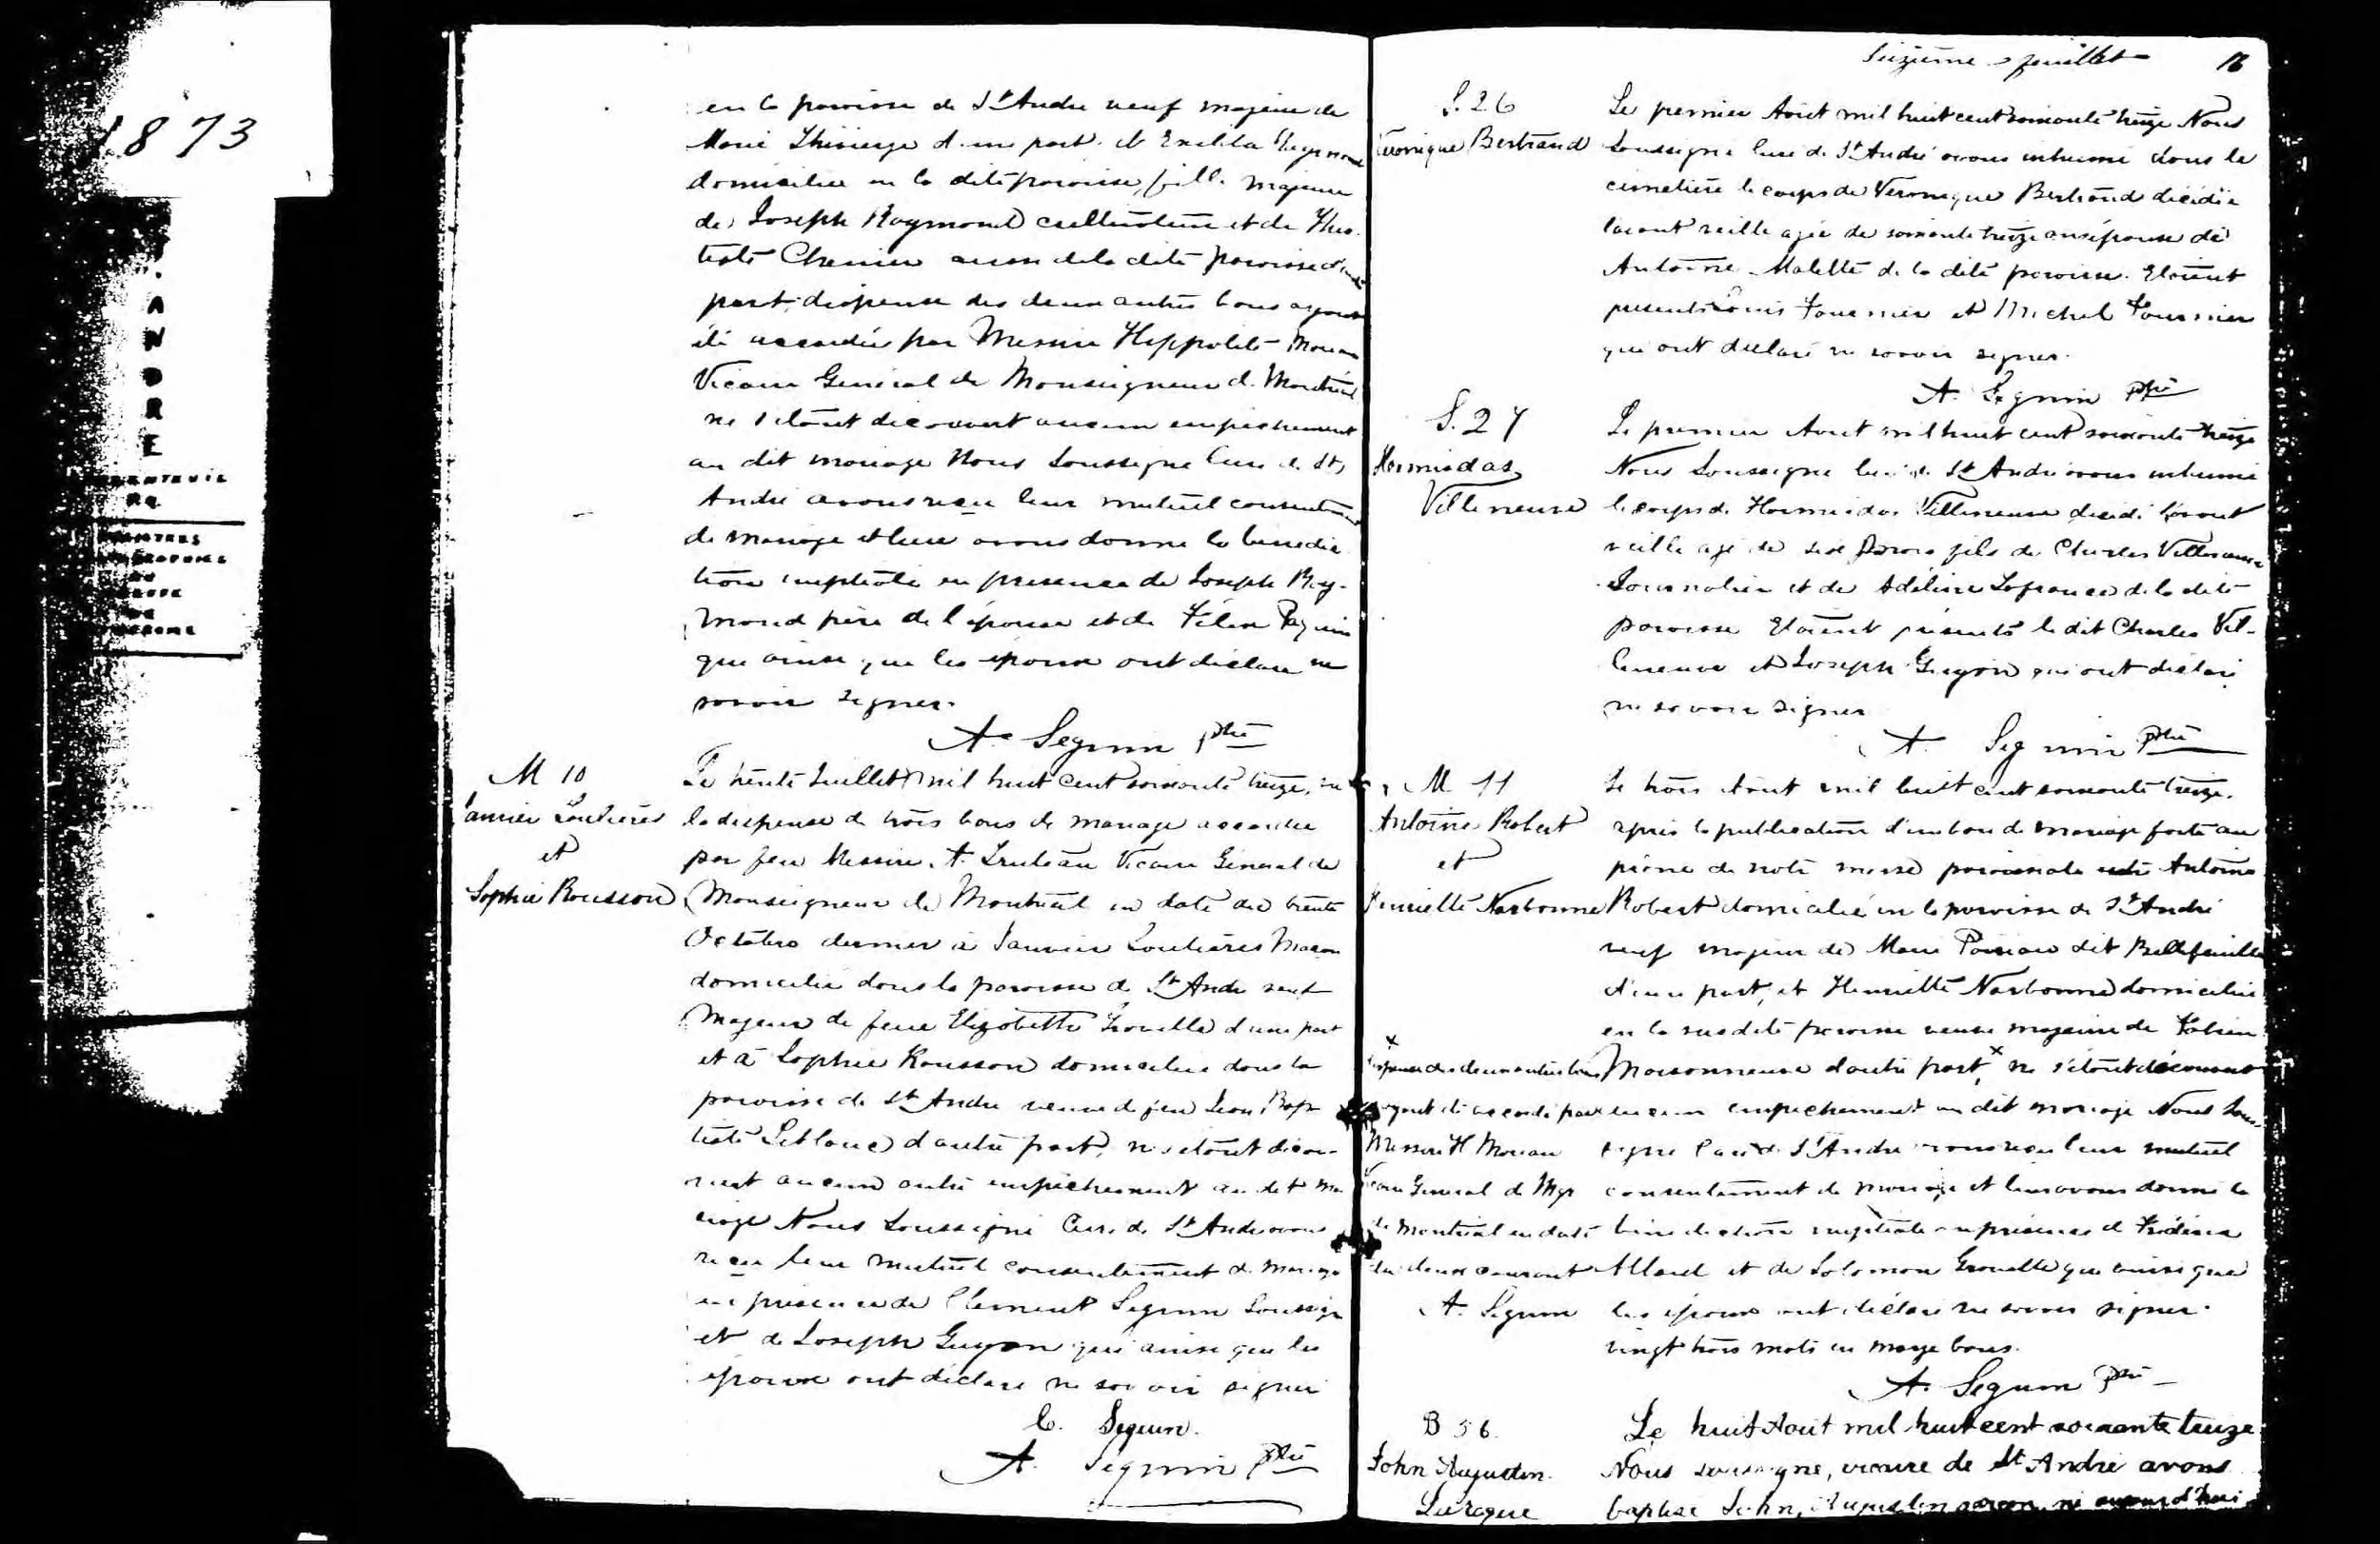 1873
ANDRE
en la paroisse de St André veuf majeur de
Marie Thivierge d'une part et Exilda Raymond
domiciliée en la dite paroisse, fille majeure
de Joseph Raymond cultivateur et de
Chenier aussi de la dite paroisse d'autre
part, dispense des deux autres bans ayant
été accordée par Messire Hippolite Moreau
Vicaire Général de Monseigneur de Montréal
ne s'étant découvert aucun empêchement
au dit mariage Nous Soussigné Curé de St
André avons reçu leur mutuel consentement
de mariage et leur avons donné la bénédic
tion nuptiale en présence de Joseph Ray-
mond père de l'épouse et de Félix Paquin
qui ainsi que les époux ont déclaré ne
savoir signer.
A. Seguin ptre
M 10
Janvier Loutières
et
Sophie Rousson
Le trente Juillet mil huit cent soixante treize, vu
la dispense de trois bans de mariage accordée
par feu Messire A. Truteau Vicaire Général de
Monseigneur de Montréal en date du trente
Octobre dernier à Janvier Loutières Maçon
domicilié dans la paroisse de St André veuf
Majeur de feue Elizabeth Grouelle d'une part
et à Sophie Rousson domiciliée dans la
paroisse de St André veuve de feu Jean Bap
tiste Leblanc d'autre part, ne s'étant décou-
vert aucun autre empêchement au dit ma
riage Nous Soussigné Curé de St André avons
reçu leur mutuel consentement de mariage
en présence de Clément Seguin Soussigné
et de Joseph Guyon qui ainsi que les
époux ont déclaré ne savoir signer
C. Seguin.
A. Seguin Ptre
Seizième feuillet 16
S. 26
Véronique Bertrand
Le premier Août mil huit cent soixante treize Nous
Soussigné Curé de St André avons inhumé dans le
cimetière le corps de Véronique Bertrand décédée
l'avant veille agée de soixante treize ans épouse de
Antoine Malette de la dite paroisse. Etaient
présents Louis Fournier et Michel Fournier
qui ont déclaré ne savoir signer.
A. Seguin ptre
S. 27
Hormisdas
Villeneuve
Le premier Août mil huit cent soixante treize
Nous Soussigné Curé de St André avons inhumé
le corps de Hormisdas Villeneuve décédé l'avant
veille agé de mois fils de Charles Villeneuve
Journalier et de Adéline Lafrance de la dite
paroisse Etaient présents le dit Charles Vil-
leneuve et Joseph Guyon qui ont déclaré
ne savoir signer
A. Seguin Ptre
M 11
Antoine Robert
et
Henriette Narbonne
Le trois Août mil huit cent soixante treize.
après la publication d'un ban de mariage faite au
prône de notre messe paroissiale entre Antoine
Robert domicilié en la paroisse de St André
veuf majeur de Marie Poirier dit Bellefeuille
d'une part, et Henriette Narbonne domiciliée
en la susdite paroisse veuve majeure de Fabien
Maisonneuve d'autre part x, ne s'étant découvert
aucun empêchement au dit mariage Nous Sous-
signé Curé de St André avons reçu leur mutuel
consentement de mariage et leur avons donné la
bénédiction nuptiale en présence de Frédéric
Allard et de Solomon Grouelle qui ainsi que
les époux ont déclaré ne savoir signer.
vingt trois mots en marge bons.
A. Seguin Ptre
x
dispense des deux autres bans
ayant été accordé par
Messire H Moreau
Vicaire Général de Mgr
de Montréal en date
du deux courant
A. Seguin
B 56.
John Augustin
Laroque
Le huit Août mil huit cent soixante treize
Nous soussigné, vicaire de St André avons
baptisé John, Augustin né aujourd'hui